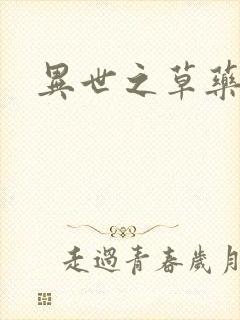 異世之草藥
走過青春歲月